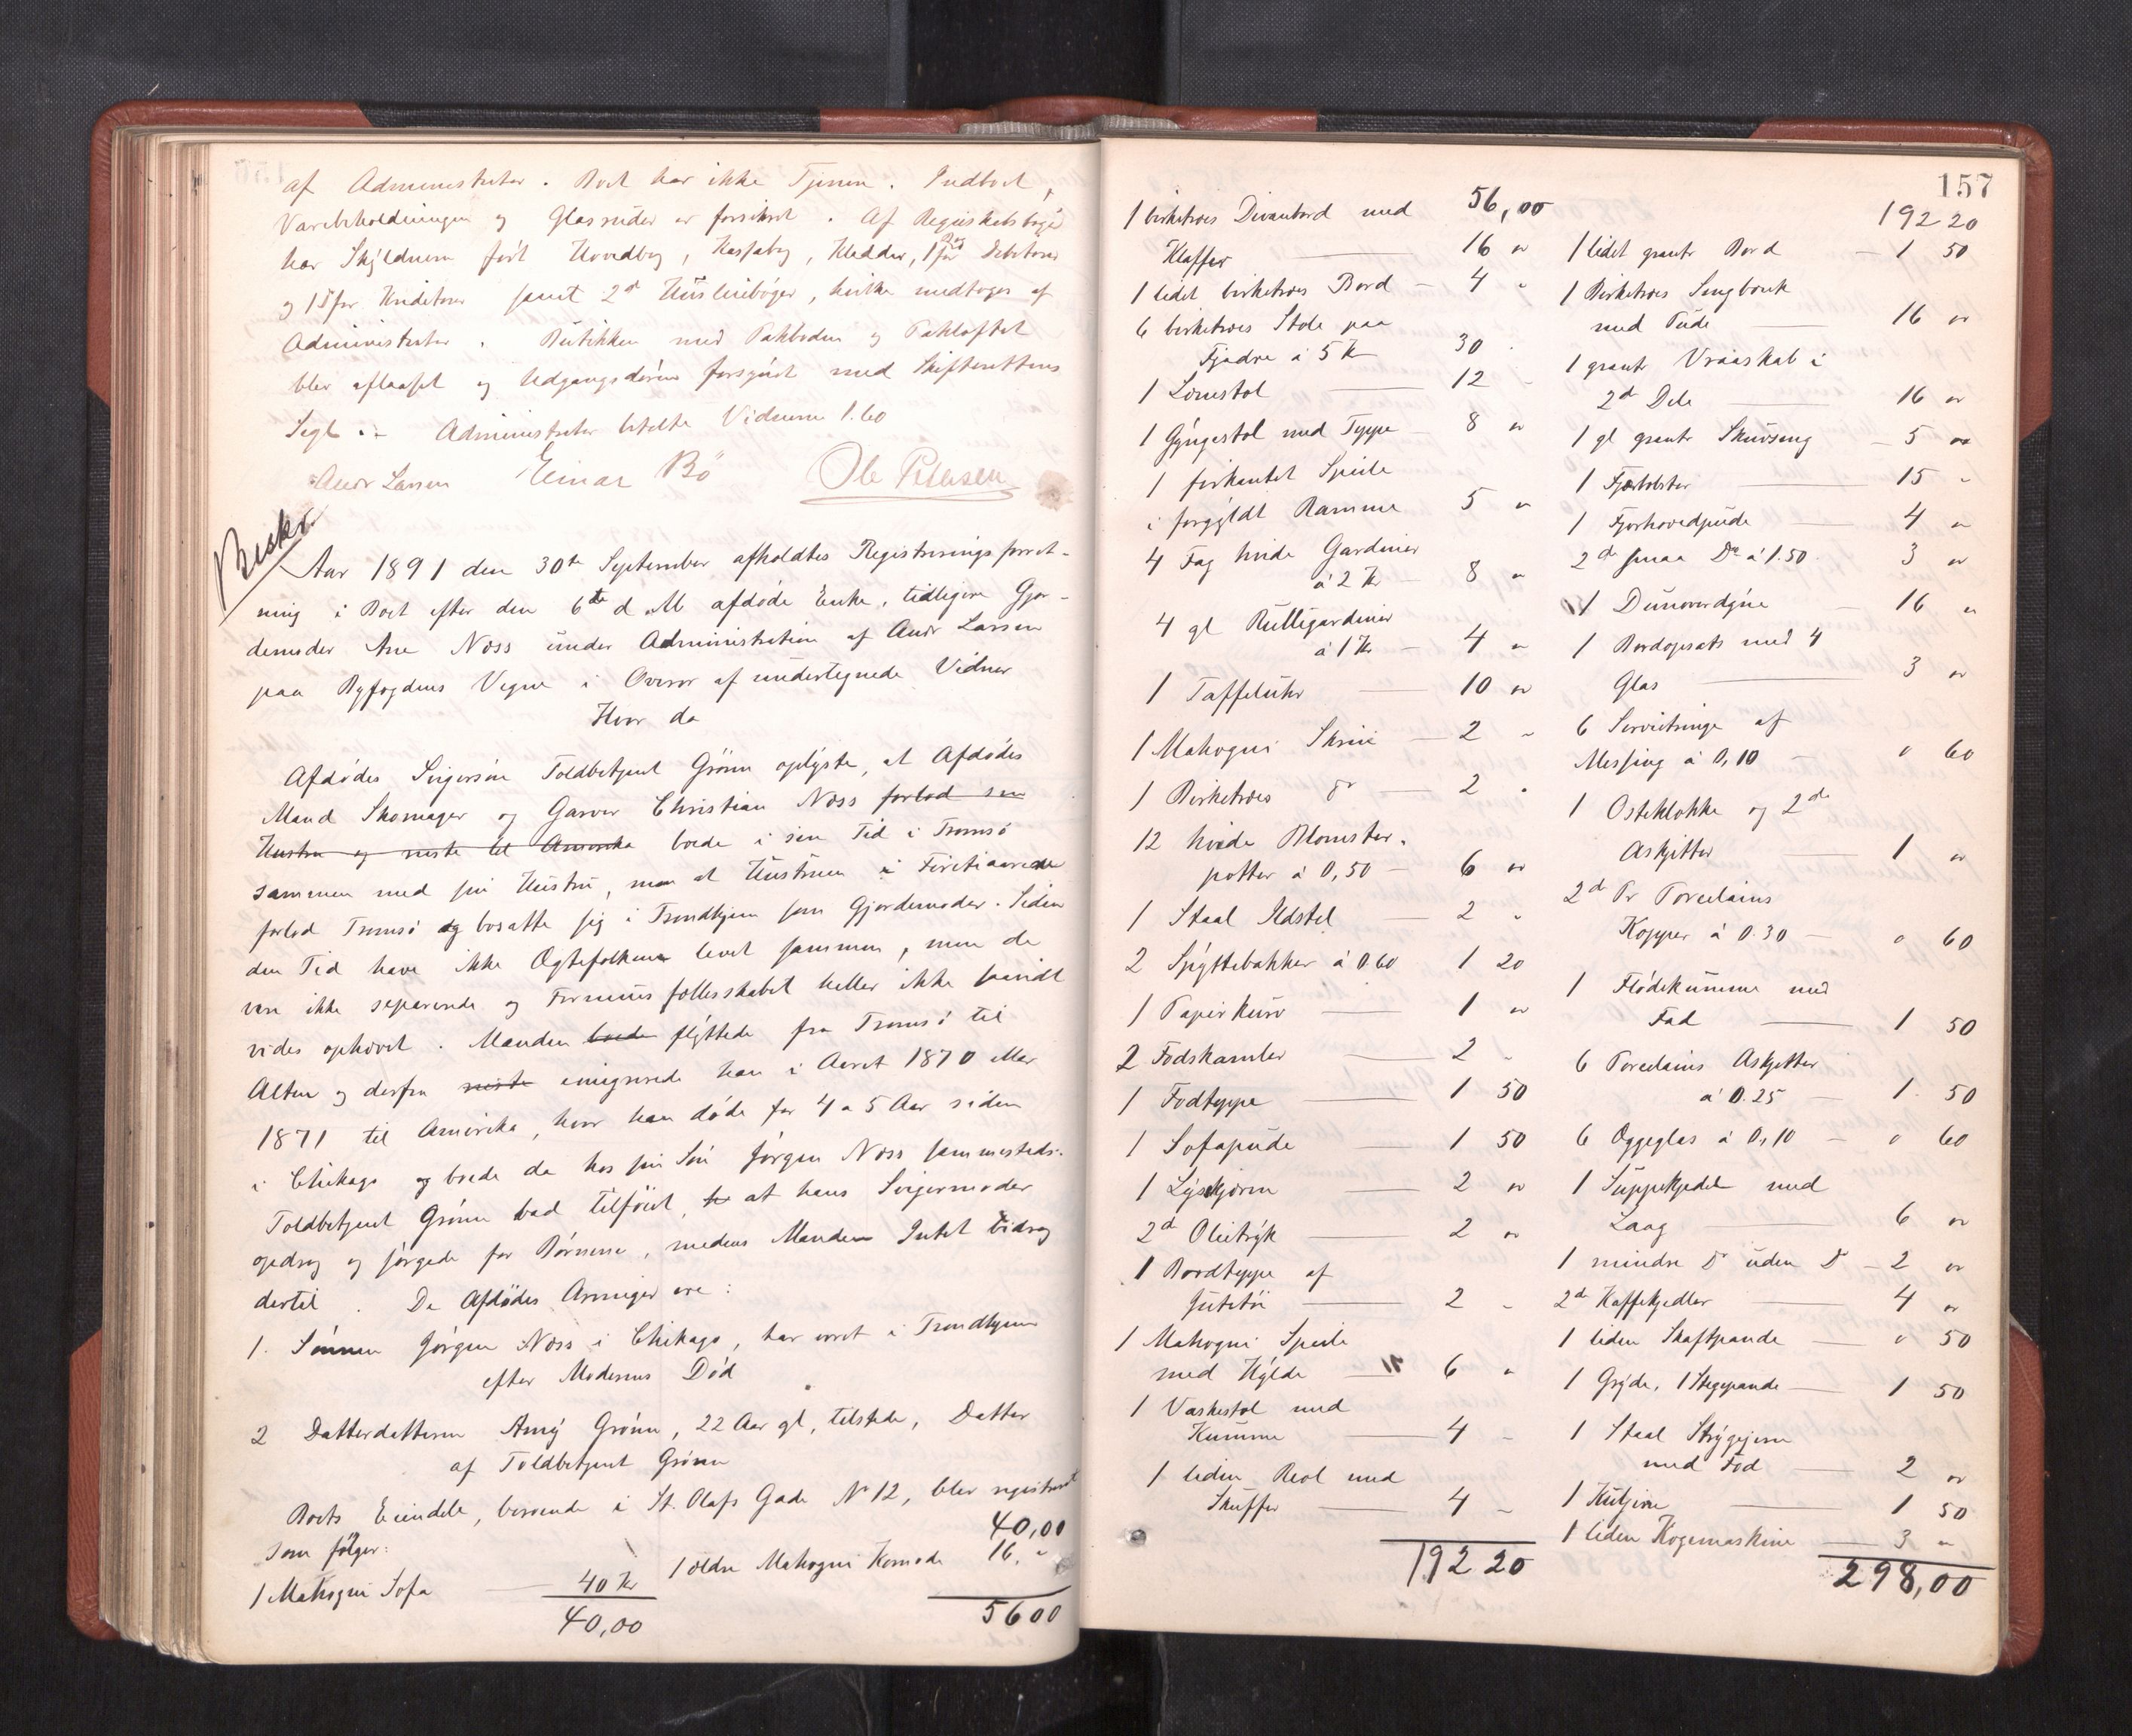 af Administrator. Boet har ikke Tjenere. Indboet,
Varebeholdningen og Glasruder er forsikret. Af Regnskabsbøger
har Skyldneren ført Hovedbog, Kassabog, Kladder, 1 Bog for Debitorer
og 1 for Kreditorer samt 2de Husleiebøger, hvilke medtoges af
Administrator. Butikken med Pakboden og Pakloftet
blev aflaaset og Udgangsdøren forsynet med Skifterettens
Segl.:- Administrator betalte Vidnerne 1.60
Andr Larsen Einar Bö Ole Petersen
Beskr.
Aar 1891 den 30te September afholdtes Registreringsforret-
ning i Boet efter den 6te d. M. afdøde Enke, tidligere Gjor-
demoder Ane Næss under Administration af Andr Larsen
paa Byfogdens Vegne i Overvær af undertegnede Vidner
Hvor da
Afdødes Svigersøn Toldbetjent Grönn oplyste, at Afdødes
Mand Skomager og Garver Christian Næss forlod sin
Hustru og reiste til Amerika boede i sin Tid i Tromsö
sammen med sin Hustru, men at Hustruen i Firetiaarene
forlod Tromsö og bosatte sig i Trondhjem som Gjordemoder. Siden
den Tid have ikke Ægtefolkene levet sammen, men de
vare ikke separerede og Formuesfællesskabet heller ikke saavidt
vides ophævet. Manden boede flyttede fra Tromsö til
Alten og derfra reiste emigrerede han i Aaret 1870 eller
1871 til Amerika, hvor han døde for 4 a 5 Aar siden
i Chikago og boede da hos sin Søn Jørgen Næss sammesteds.
Toldbetjent Grönn bad tilføiet, at hans Svigermoder
opdrog og sørgede for Børnene, medens Manden Intet bidrog
dertil. De Afdødes Arvinger ere:
1. Sønnen Jørgen Næss i Chikago, har været i Trondhjem
efter Moderens Død
2 Datterdatteren Amy Grönn, 22 Aar gl, tilstede, Datter
af Toldbetjent Grönn
Boets Eiendele, beroende i St. Olafs Gade No 12, blev registreret
som følger:
1 Mahogni Sofa 40 Kr
40,00
40,00
1 ældre Mahogni Komode 16,"
5600
157
56,00
1 birketræs Divanbord med
Klaffer 16 "
1 lidet birketræs Bord - 4 "
6 birketræs Stole paa
Fjædre á 5 Kr 30
1 Lænestol 12 "
1 Gyngestol med Teppe 8 "
1 firkantet Speile
i forgyldt Ramme 5 "
4 Fag hvide Gardiner
á 2 Kr - 8 "
4 gl Rullegardiner
á 1 Kr - 4 "
1 Taffeluhr 10 "
1 Mahogni Skrin - 2 "
1 Birketræs do - 2 "
12 hvide Blomster-
potter á 0,50 - 6 "
1 Staal Ildstel - 2 "
2 Spyttebakker á 0.60 1 20
1 Papirkurv 1 "
2 Fodskamler 2 "
1 Fodteppe 1 50
1 Sofapude 1 50
1 Lysskjærm 2 "
2d Olietryk 2 "
1 Bordteppe af
Jutetöi 2 "
1 Mahogni Speile
med Hylde 6 "
1 Vaskestol med
Kumme 4 "
1 liden Reol med
Skuffer 4 "
192 20
192 20
1 lidet grant Bord - 1 50
1 Birketræs Sengbænk
med Pude 16 "
1 grant Vraaskab i
2d Dele 16 "
1 gl grant Skuvseng - 5 "
1 Fjærbolster 15 "
1 Fjærhovedpude 4 "
2d smaa Do á 1.50 3 "
1 Dunoverdyne 16 "
1 Bordopsats med 4
Glas 3 "
6 Servietringe af
Messing á 0,10 - " 60
1 Osteklokke og 2de
Asjetter 1 "
2d Pr Porcelains
Kopper á 0.30 - " 60
1 Flødekumme med
Fad 1 50
6 Porcelains Askjetter
á 0.25 - 1. 50
6 Æggeglas á 0,10 - " 60
1 Suppekjedel med
Laag 6 "
1 mindre Do uden Do - 2 "
2d Kaffekjedler 4 "
1 liden Skaftpande " 50
1 Gryde, 1 Stegepande - 1 50
1 Staal Strygejern
med Fod 2 "
1 1 50
1 liden Kogemaskine 3 "
298,00